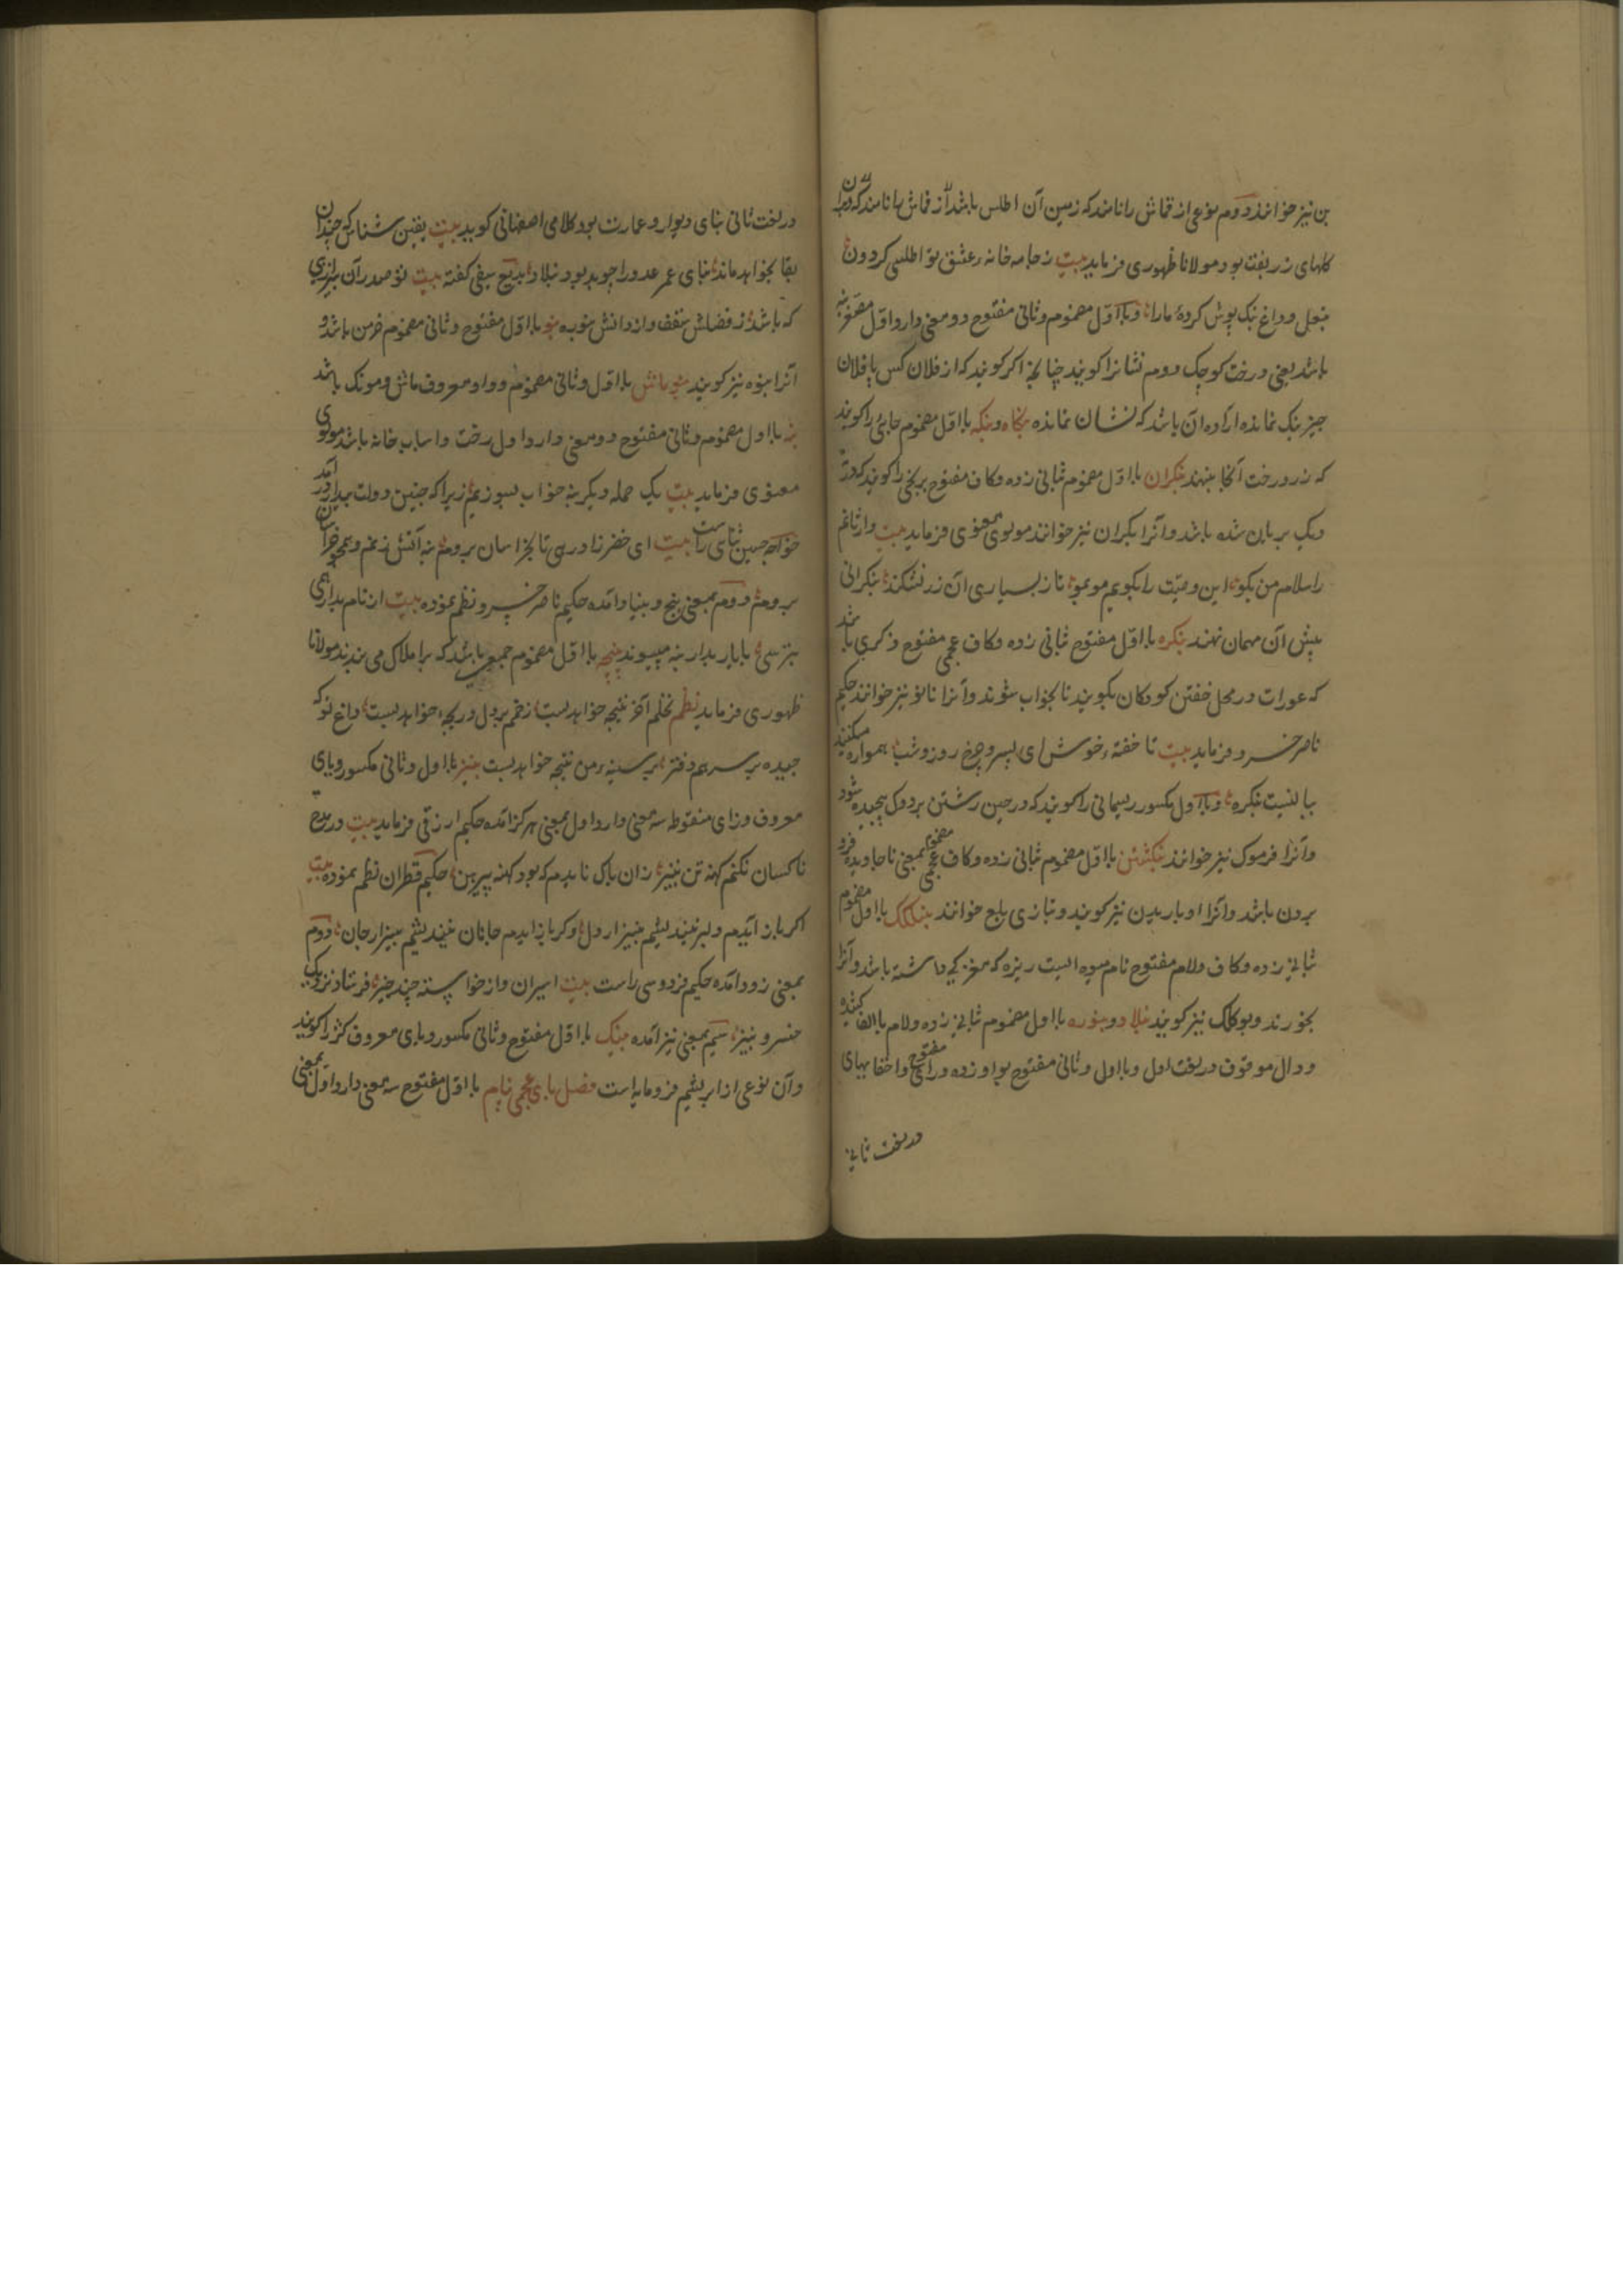 بن نیز خوانند دوم نوعی از قماش را نامند که زمین آن اطلس باشد از قماش ها نامند که در آن
کلهای زربفت بود مولانا ظهوری فرماید بیت ز جامه خانه عشق تو اطلس کردون
بنعل و داغ بنک پوش کرده مارا و با اول مضموم و ثانی مفتوح دو معنی دارد اول مصغر بنه
باشد یعنی درخت کوچک دوم نشانرا کویند چنانچه اکر کویند که از فلان کس یا فلان
چیز بنک نمانده اراده آن باشد که نشان نمانده بنکاه و بنکه با اول مضموم جائی را کویند
که زر و رخت آنجا بنهند بنکران با اول مضموم بثانی زده و کاف مفتوح برنجی را کویند که در ته
دیک بریان شده باشد و آنرا بکران نیز خوانند مولوی معنوی فرماید بیت
را سلام من بکو این وصیت را بکویم مو بمو تا ز بسیاری آن زر نشکند بنکرانی
پیش آن مهمان نهند بنکره با اول مفتوح بثانی زده و کاف عجمی مفتوح ذکری باشد
که عورات در محل خفتن کودکان بکویند تا بخواب شوند و آنرا نانو نیز خوانند حکیم
ناصر خسرو فرماید بیت تا خفته خوش ای پسر و چرخ روز و شب همواره میکنند
ببالینت بنکره و با اول مکسور ریسمانی را کویند که در حین رشتن بر دوک پیچیده شود
و آنرا فرموک نیز خوانند بنکشتن با اول مضموم بثانی زده و کاف عجمی مضموم بمعنی ناجاویده فرو
بردن باشد و آنرا اوباریدن نیز کویند و بتازی بلع خوانند بنکلک با اول مضموم
ثانی زده و کاف و لام مفتوح نام میوه ایست ریزه که مغزکی داشته باشد و آنرا
بخورند و بوکلک نیز کویند بنلاد و بنوره با اول مضموم ثانی زده و لام با الف کشیده
و دال موقوف در لغت اول و با اول و ثانی مفتوح بواو زده و رای مفتوح و اخفا بهای
در لغت ثانی
در لغت ثانی بنای دیوار و عمارت بود کلامی اصفهانی کوید بیت یقین شناس که چندان
بقا بخواهد ماند بنای عمر عدو را چو بد بود بنلاد بدیع سیفی کفته بیت تو صدر آن
که باشد ز فضلش سقف و از دانش بنوره بنو با اول مفتوح و ثانی مضموم خرمن باشد و
آنرا بنوه نیز کویند بنوماش با اول و ثانی مضموم و واو معروف ماش و مونک باشد
بنه با اول مضموم و ثانی مفتوح دو معنی دارد اول رخت و اسباب خانه باشد مولوی
معنوی فرماید بیت یک حمله دیکر بنه خواب بسوزیم زیرا که چنین دولت بیدار در آمد
خواجه حسین ثنائی راست بیت ای خضر تا بخراسان بروم بنه آتش زنم و
بروم دوم بمعنی بیخ و بنیاد آمده حکیم ناصر خسرو نظم نموده بیت
بنیجه با اول مضموم جمعی باشد که بر املاک می بندند مولانا
ظهوری فرماید نظم نخلم آخر نتیجه خواهد بست زخم بر دل دریچه خواهد بست داغ تو که
چیده بر سرهم دفتر بر سینه من بنیجه خواهد بست بنیز با اول و ثانی مکسور و یای
معروف و زای منقوطه سه معنی دارد اول بمعنی هرکز آمده حکیم ازرقی فرماید بیت در مدح
ناکسان نکنم کهنه تن بنیز زان باک نایدم که بود کهنه پیرهن حکیم قطران نظم نموده بیت
اکر باز آیدم دلبر نیندیشم بنیز از دل و کر باز آیدم جانان نیندیشم بنیز از جان دوم
بمعنی زود آمده حکیم فردوسی راست بیت اسیران و از خواسته چند چیز فرستاد نزدیک
خسرو بنیز سیم بمعنی نیز آمده بنیک با اول مفتوح و ثانی مکسور و یای معروف کژ را کویند
و آن نوعی از ابریشم فرومایه است فصل بای عجمی پنام با اول مفتوح سه معنی دارد اول بمعنی